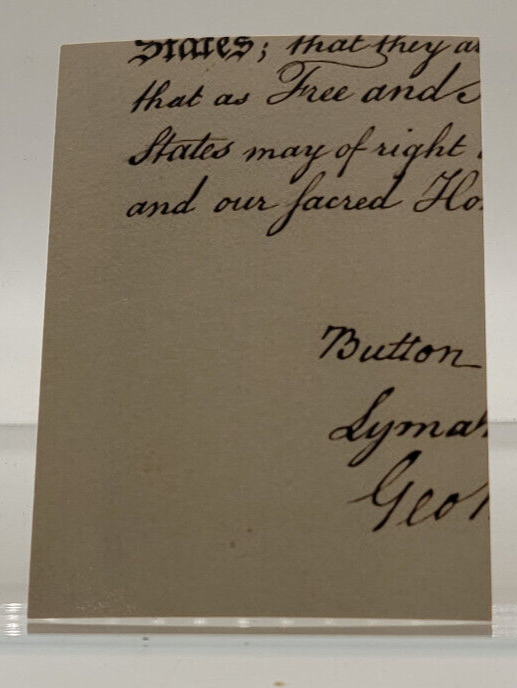 States; that they
that as Free and
States may of right
and our sacred
Button